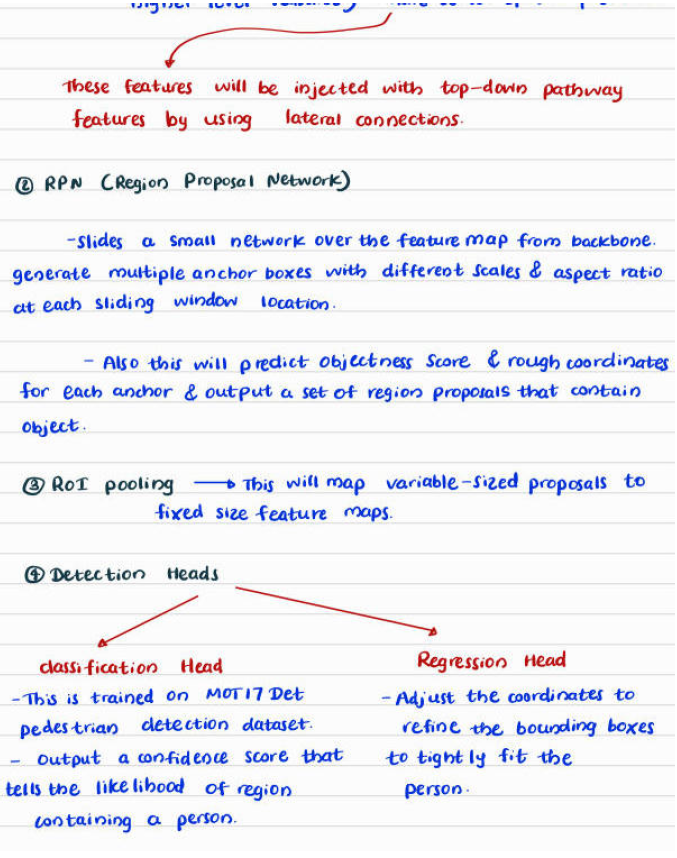 These features will be injected with top-down pathway
features by using lateral connections.
② RPN (Region Proposal Network)
-slides a small network over the feature map from backbone.
generate multiple anchor boxes with different scales & aspect ratio
at each sliding window location.
- Also this will predict objectness score & rough coordinates
for each anchor & output a set of region proposals that contain
object.
③ RoI pooling → This will map variable-sized proposals to
fixed size feature maps.
④ Detection Heads
classification Head
-This is trained on MOT17 Det
pedestrian detection dataset.
- Output a confidence score that
tells the likelihood of region
containing a person.
Regression Head
-Adjust the coordinates to
refine the bounding boxes
to tightly fit the
person.